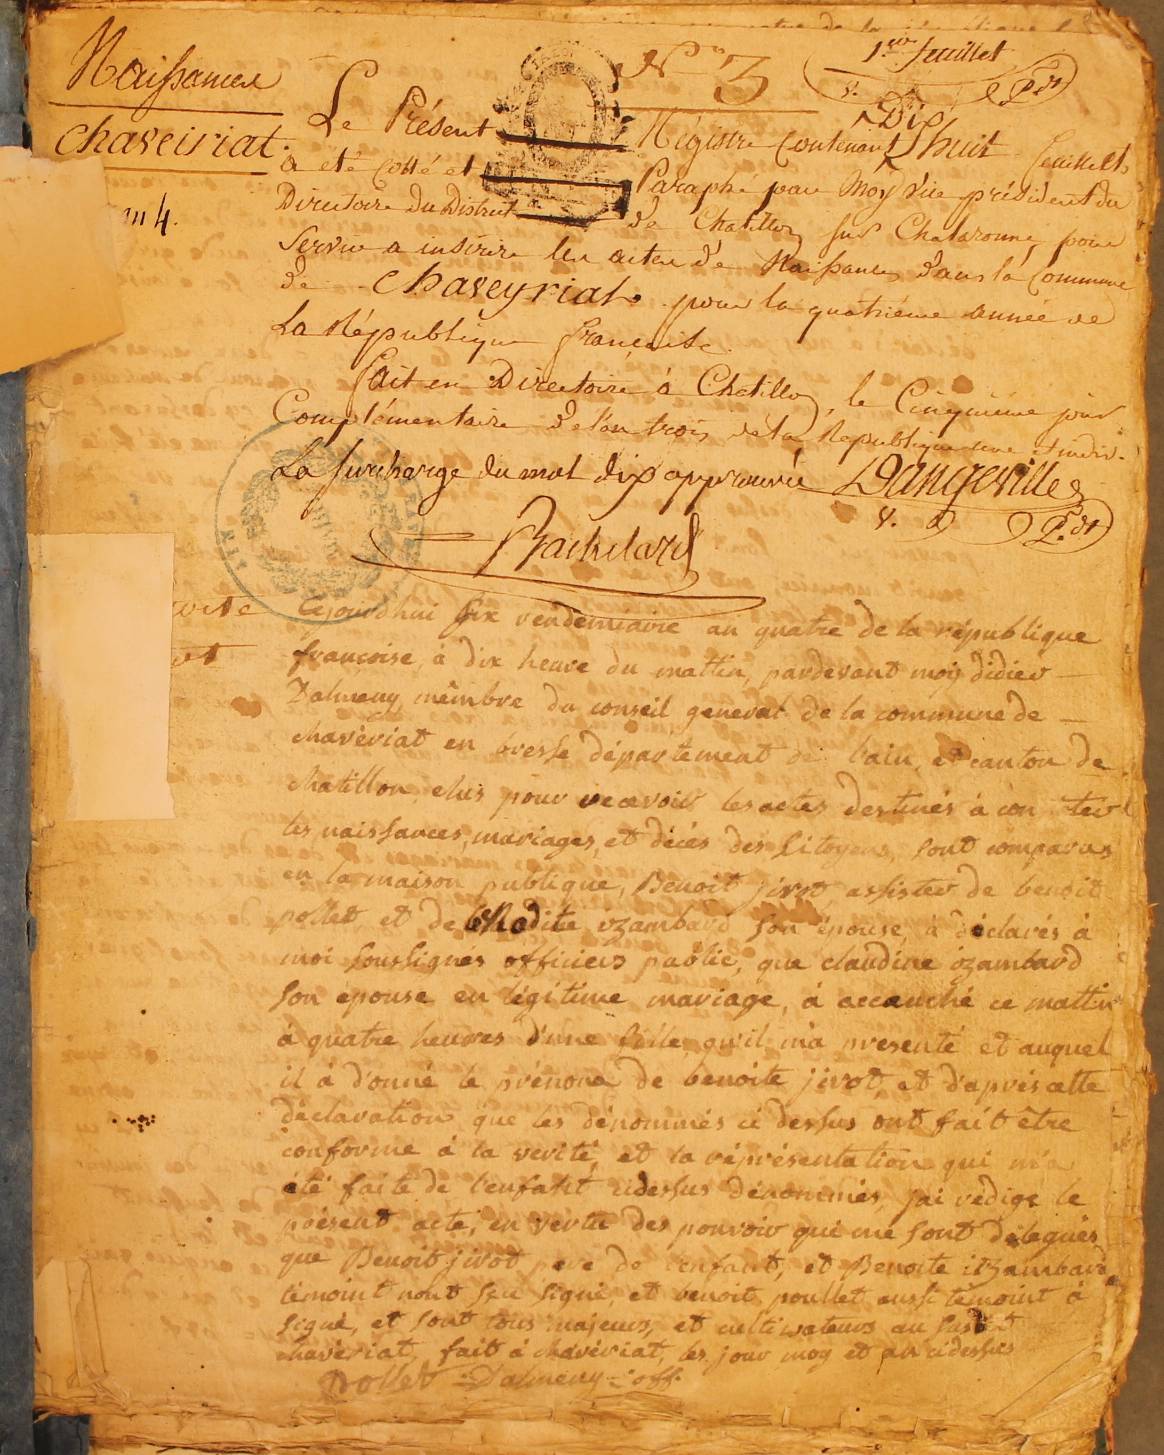 Naissances
Chaveiriat.
an 4.
N° 3
1er feuillet
V. Pdt
Le Présent Régistre Contenant Dixhuit feuillets
a eté Cotté et Paraphé par Moy Vice président du
Directoire Du District de Chatillon sur Chalaronne pour
Servir a inscrire les actes de Naissances dans la Commune
de Chaveyriat pour la quatriéme année de
La République françaiste.
fait en Directoire à Chatillon, le Cinquiéme jour
Complémentaire de l'an trois de la République une et indiv.
La surcharge du mot dix approuvée Dangeville
V. Pdt
Bachelard
Cejourdhui six vendemiaire an quatre de la république
françoise, à dix heure du mattin, pardevant moy didier
Dalmeny, mêmbre du conseil general de la commune de
chavériat en bresse département de l'ain, et canton de
chatillon, elus pour recevoir les actes destinés à con ter
les naissances, mariages, et décés des Citoyens, sont comparus
en la maison publique, Benoit jivot, assister de benoit
pollet, et de benodite izambard son épouse, à déclarés à
moi soussignés officiers public, que claudine ozambard
son épouse en légitime mariage, à accauché ce mattin
à quatre heures d'une fille, qu'il m'a presenté et auquel
il à d'onné le prénom de benoite jivot, et d'aprés cette
déclaration que les dénommés ci dessus ont fait être
conforme à la verité, et la répréséntation qui m'a
été faite de l'enfant cidessus dénommés, jai rédige le
présent acte, en vertu des pouvoir qui me sont délegués,
que Benoit jivot pere de l'enfant, et Benoite izambard
témoint n'ont sçu signé, et benoit poullet aussi témoint à
signé, et sont tous majeurs, et cultivateurs au susdit
chavériat, fait à chavériat, les jour moy et an cidessus
pollet Dalmeny off.